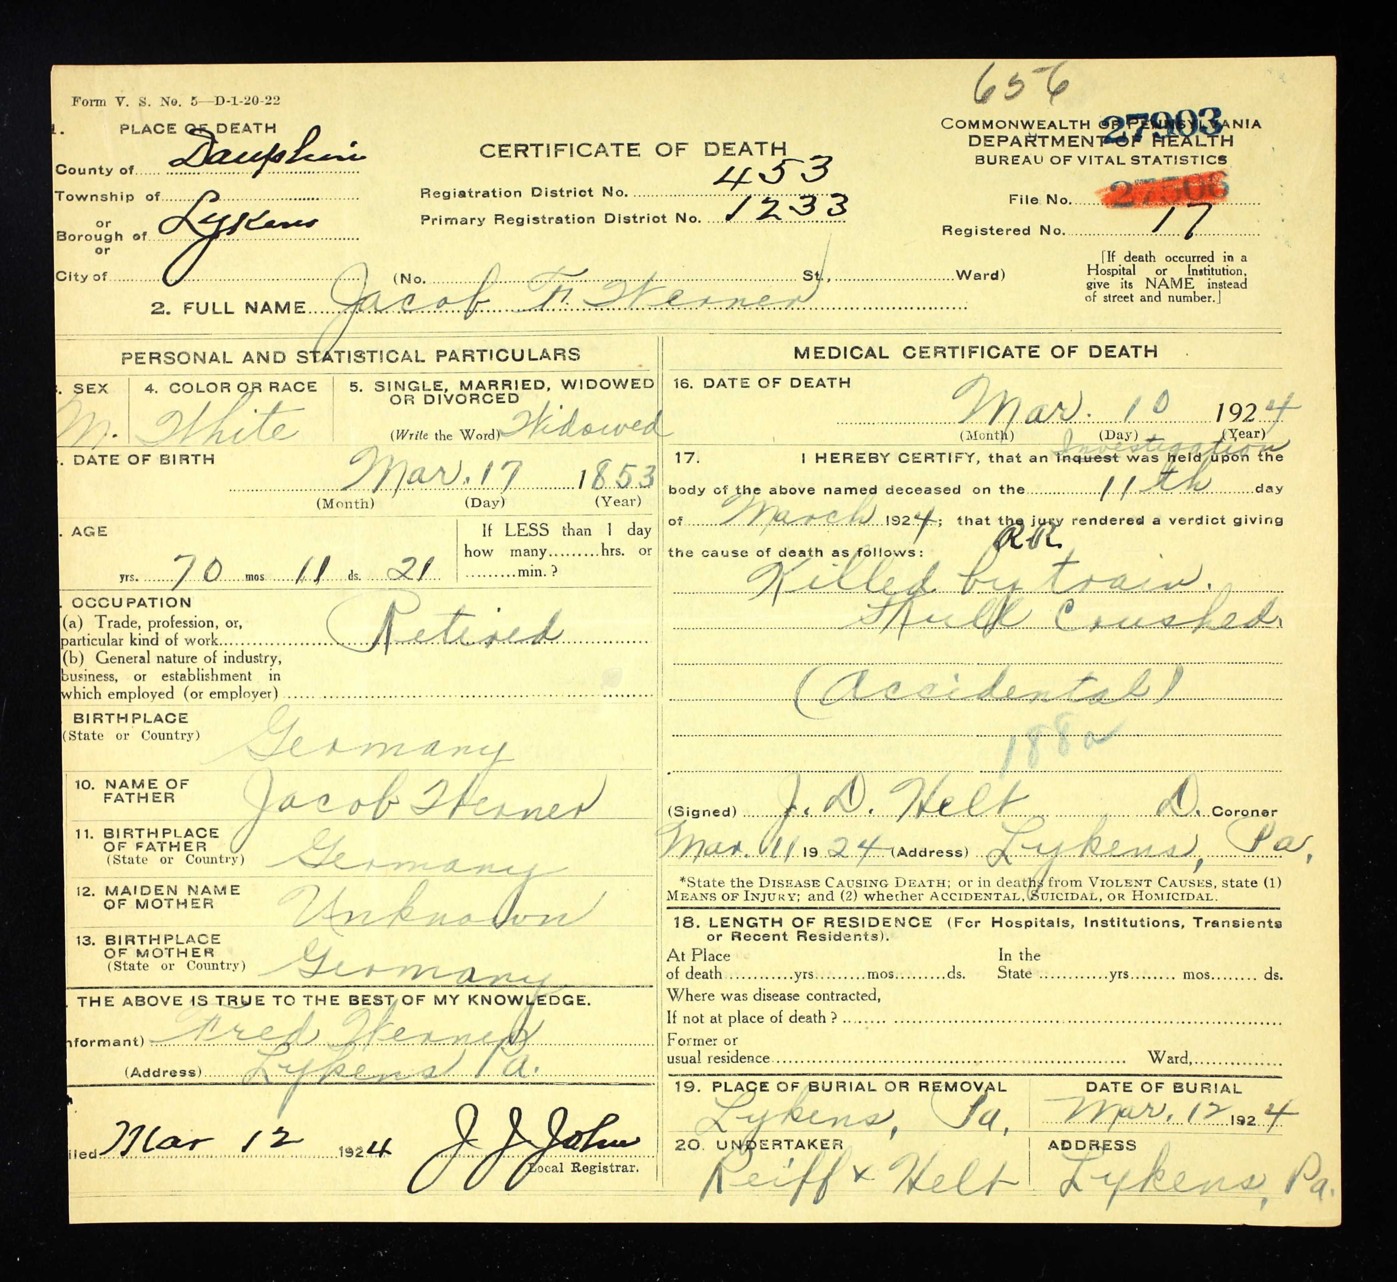 656
Form V. S. No. 5—D-1-20-22
1. PLACE OF DEATH
County of Dauphin
Township of
or
Borough of Lykens
or
City of
CERTIFICATE OF DEATH
Registration District No. 453
Primary Registration District No. 1233
(No. St., Ward)
27903
COMMONWEALTH OF PENNSYLVANIA
DEPARTMENT OF HEALTH
BUREAU OF VITAL STATISTICS
File No. 27506
Registered No. 17
[If death occurred in a
Hospital or Institution,
give its NAME instead
of street and number.]
2. FULL NAME Jacob F. Werner
PERSONAL AND STATISTICAL PARTICULARS
. SEX M.
4. COLOR OR RACE White
5. SINGLE, MARRIED, WIDOWED
OR DIVORCED
(Write the Word) Widowed
. DATE OF BIRTH
Mar. 17 1853
(Month) (Day) (Year)
. AGE
70 yrs. 11 mos. 21 ds.
If LESS than 1 day
how many hrs. or
min.?
. OCCUPATION
(a) Trade, profession, or,
particular kind of work Retired
(b) General nature of industry,
business, or establishment in
which employed (or employer)
BIRTHPLACE
(State or Country) Germany
10. NAME OF
FATHER Jacob Werner
11. BIRTHPLACE
OF FATHER
(State or Country) Germany
12. MAIDEN NAME
OF MOTHER Unknown
13. BIRTHPLACE
OF MOTHER
(State or Country) Germany
. THE ABOVE IS TRUE TO THE BEST OF MY KNOWLEDGE.
nformant) Fred Werner
(Address) Lykens Pa.
iled Mar 12 1924 J J John
Local Registrar.
MEDICAL CERTIFICATE OF DEATH
16. DATE OF DEATH
Mar. 10 1924
(Month) (Day) (Year)
Investigation
17. I HEREBY CERTIFY, that an inquest was held upon the
body of the above named deceased on the 11th day
of March 1924; that the jury rendered a verdict giving
the cause of death as follows: RR
Killed by train.
Skull Crushed.
(Accidental)
188a
(Signed) J. D. Helt D. Coroner
Mar. 11 1924 (Address) Lykens, Pa.
*State the DISEASE CAUSING DEATH; or in deaths from VIOLENT CAUSES, state (1)
MEANS OF INJURY; and (2) whether ACCIDENTAL, SUICIDAL, OR HOMICIDAL.
18. LENGTH OF RESIDENCE (For Hospitals, Institutions, Transients
or Recent Residents).
At Place In the
of death yrs. mos. ds. State yrs. mos. ds.
Where was disease contracted,
If not at place of death?
Former or
usual residence Ward,
19. PLACE OF BURIAL OR REMOVAL
Lykens, Pa.
DATE OF BURIAL
Mar. 12 1924
20. UNDERTAKER
Reiff & Helt
ADDRESS
Lykens, Pa.